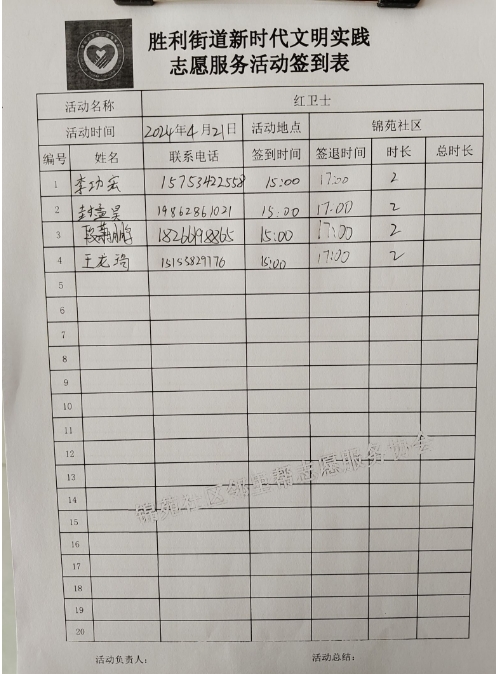 胜利街道新时代文明实践
志愿服务活动签到表
活动名称 红卫士
活动时间 2024年4月21日 活动地点 锦苑社区
编号 姓名 联系电话 签到时间 签退时间 时长 总时长
1 李功宏 15753422558 15:00 17:00 2
2 19862861021 15:00 17:00 2
3 18266918865 15:00 17:00 2
4 王龙琦 15155829176 15:00 17:00 2
5
6
7
8
9
10
11
12
13
14
15
16
17
18
19
20
锦苑社区邻里帮志愿服务协会
活动负责人: 活动总结: